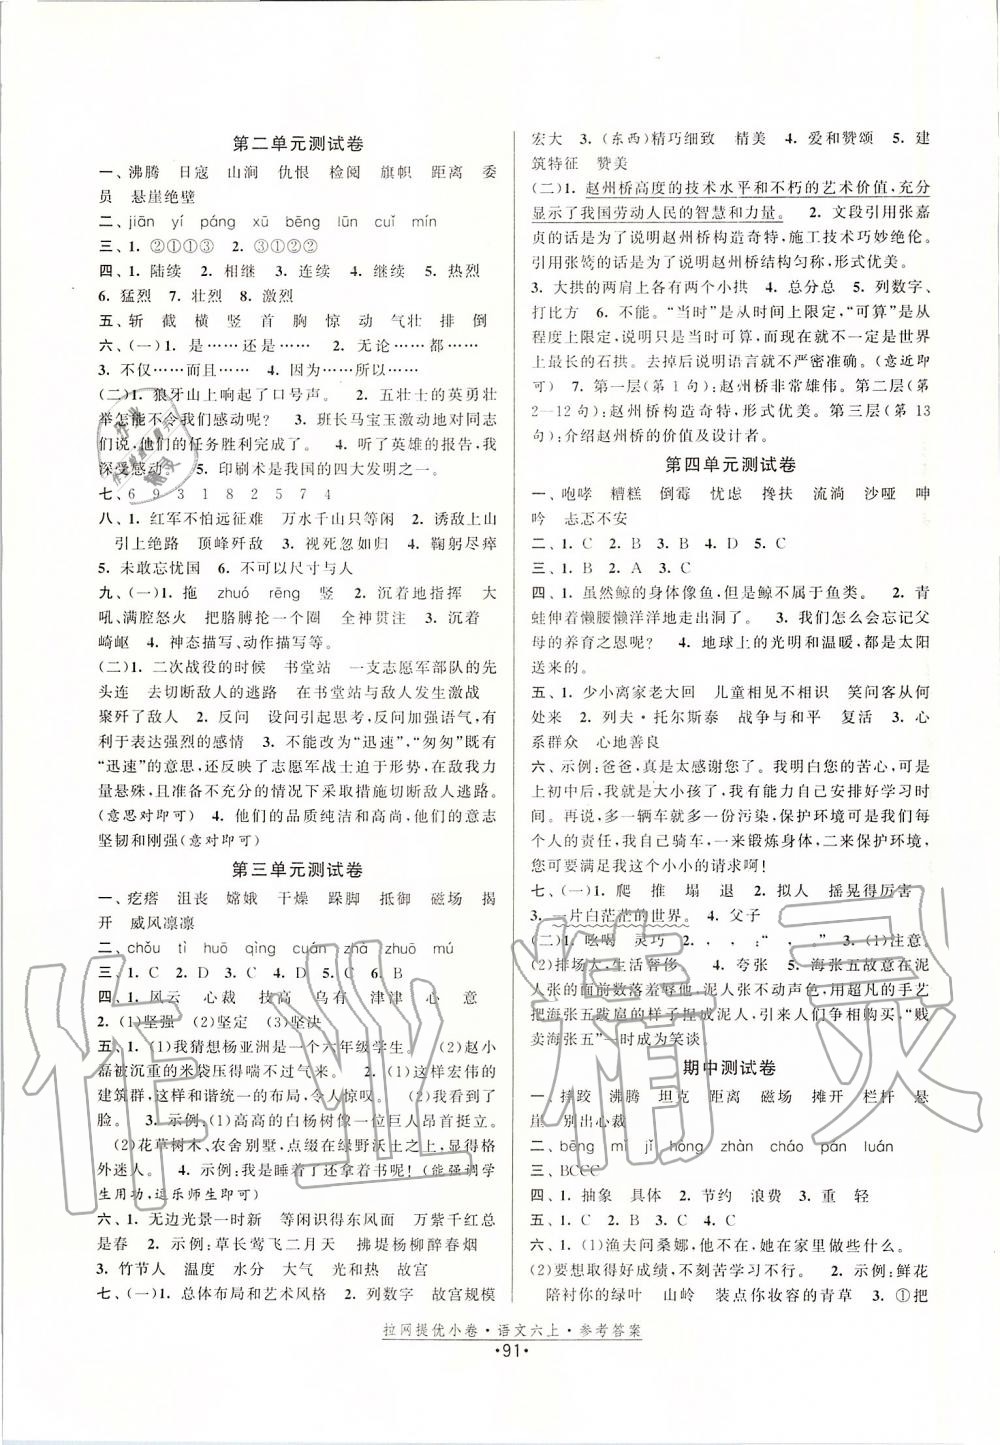 第二单元测试卷
一、沸腾 日寇 山涧 仇恨 检阅 旗帜 距离 委
员 悬崖绝壁
二、jiān yí páng xū bēng lūn cuī mín
三、1. ②①①③ 2. ③①②②
四、1. 陆续 2. 相继 3. 连续 4. 继续 5. 热烈
6. 猛烈 7. 壮烈 8. 激烈
五、斩 截 横 竖 首 胸 惊 动 气壮 排 倒
六、(一)1. 是……还是…… 2. 无论……都……
3. 不仅……而且…… 4. 因为……所以……
(二)1. 狼牙山上响起了口号声。 2. 五壮士的英勇壮
举怎能不令我们感动呢? 3. 班长马宝玉激动地对同志
们说,他们的任务胜利完成了。 4. 听了英雄的报告,我
深受感动。 5. 印刷术是我国的四大发明之一。
七、6 9 3 1 8 2 5 7 4
八、1. 红军不怕远征难 万水千山只等闲 2. 诱敌上山
引上绝路 顶峰歼敌 3. 视死忽如归 4. 鞠躬尽瘁
5. 未敢忘忧国 6. 不可以尺寸与人
九、(一)1. 拖 zhuó rēng 竖 2. 沉着地指挥 大
吼、满腔怒火 把胳膊抡一个圈 全神贯注 3. 沉着
崎岖 4. 神态描写、动作描写等。
(二)1. 二次战役的时候 书堂站 一支志愿军部队的先
头连 去切断敌人的逃路 在书堂站与敌人发生激战
聚歼了敌人 2. 反问 设问引起思考,反问加强语气,有
利于表达强烈的感情 3. 不能改为“迅速”,“匆匆”既有
“迅速”的意思,还反映了志愿军战士迫于形势,在敌我力
量悬殊,且准备不充分的情况下采取措施切断敌人逃路。
(意思对即可) 4. 他们的品质纯洁和高尚,他们的意志
坚韧和刚强(意对即可)
第三单元测试卷
一、疙瘩 沮丧 嫦娥 干燥 跺脚 抵御 磁场 揭
开 威风凛凛
二、chǒu tì huō qìng cuán zhā zhuō mú
三、1. C 2. D 3. D 4. C 5. D 6. B
四、1. 风云 心裁 技高 乌有 津津 心 意
2. (1)坚强 (2)坚定 (3)坚决
五、1. (1)我猜想杨亚洲是一个六年级学生。 (2)赵小
磊被沉重的米袋压得喘不过气来。 2. (1)这样宏伟的
建筑群,这样和谐统一的布局,令人惊叹。 (2)我看到了
脸。 3. 示例:(1)高高的白杨树像一位巨人昂首挺立。
(2)花草树木、农舍别墅,点缀在绿野沃土之上,显得格
外迷人。 4. 示例:我是睡着了还拿着书呢!(能强调学
生用功,逗乐师生即可)
六、1. 无边光景一时新 等闲识得东风面 万紫千红总
是春 2. 示例:草长莺飞二月天 拂堤杨柳醉春烟
3. 竹节人 温度 水分 大气 光和热 故宫
七、(一)1. 总体布局和艺术风格 2. 列数字 故宫规模
宏大 3. (东西)精巧细致 精美 4. 爱和赞颂 5. 建
筑特征 赞美
(二)1. 赵州桥高度的技术水平和不朽的艺术价值,充分
显示了我国劳动人民的智慧和力量。 2. 文段引用张嘉
贞的话是为了说明赵州桥构造奇特,施工技术巧妙绝伦。
引用张鷟的话是为了说明赵州桥结构匀称,形式优美。
3. 大拱的两肩上各有两个小拱 4. 总分总 5. 列数字、
打比方 6. 不能。“当时”是从时间上限定,“可算”是从
程度上限定,说明只是当时可算,而现在就不一定是世界
上最长的石拱。去掉后说明语言就不严密准确。(意近即
可) 7. 第一层(第 1 句):赵州桥非常雄伟。第二层(第
2—12句):赵州桥构造奇特,形式优美。第三层(第 13
句):介绍赵州桥的价值及设计者。
第四单元测试卷
一、咆哮 糟糕 倒霉 忧虑 搀扶 流淌 沙哑 呻
吟 忐忑不安
二、1. C 2. B 3. B 4. D 5. C
三、1. B 2. A 3. C
四、1. 虽然鲸的身体像鱼,但是鲸不属于鱼类。 2. 青
蛙伸着懒腰懒洋洋地走出洞了。 3. 我们怎么会忘记父
母的养育之恩呢? 4. 地球上的光明和温暖,都是太阳
送来的。
五、1. 少小离家老大回 儿童相见不相识 笑问客从何
处来 2. 列夫·托尔斯泰 战争与和平 复活 3. 心
系群众 心地善良
六、示例:爸爸,真是太感谢您了。我明白您的苦心,可是
上初中后,我就是大小孩了,我有能力安排好学习时
间。再说,多一辆车就多一份污染,保护环境可是我们每
个人的责任,我自己骑车,一来锻炼身体,二来保护环境,
您可要满足我这个小小的请求啊!
七、(一)1. 爬 推 塌 退 2. 拟人 摇晃得厉害
3. 一片白茫茫的世界。 4. 父子
(二)1. 吆喝 灵巧 2. , 。:“ , 。” 3. (1)注意。
(2)排场大,生活奢侈。 4. 夸张 5. 海张五故意在泥
人张的面前数落羞辱他,泥人张不动声色,用超凡的手艺
把海张五跋扈的样子捏成泥人,人们争相购买,“贱
卖海张五”一时成为笑谈。
期中测试卷
一、摔跤 沸腾 坦克 距离 磁场 摊开 栏杆 悬
崖 别出心裁
二、bēng mì jǐ hóng zhàn cháo pan luán
三、BCCC
四、1. 抽象 具体 2. 节约 浪费 3. 重 轻
五、1. C 2. B 3. B 4. C 5. C
六、1. (1)渔夫问桑娜,他不在,她在家里做些什么。
(2)要想取得好成绩,不刻苦学习不行。 2. 示例:鲜花
陪衬你的绿叶 山岭 装点你妆容的青草 3. ①把
拉网提优小卷·语文六上·参考答案
·91·
作业精灵